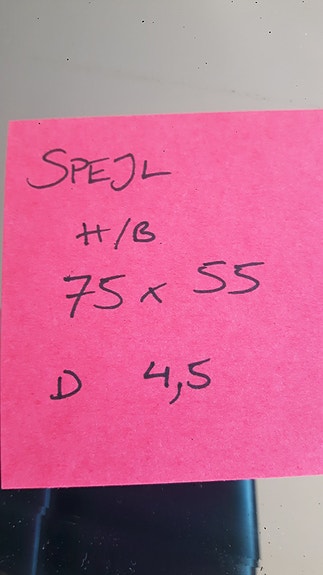 SPEJL
H/B
75 x 55
D 4,5